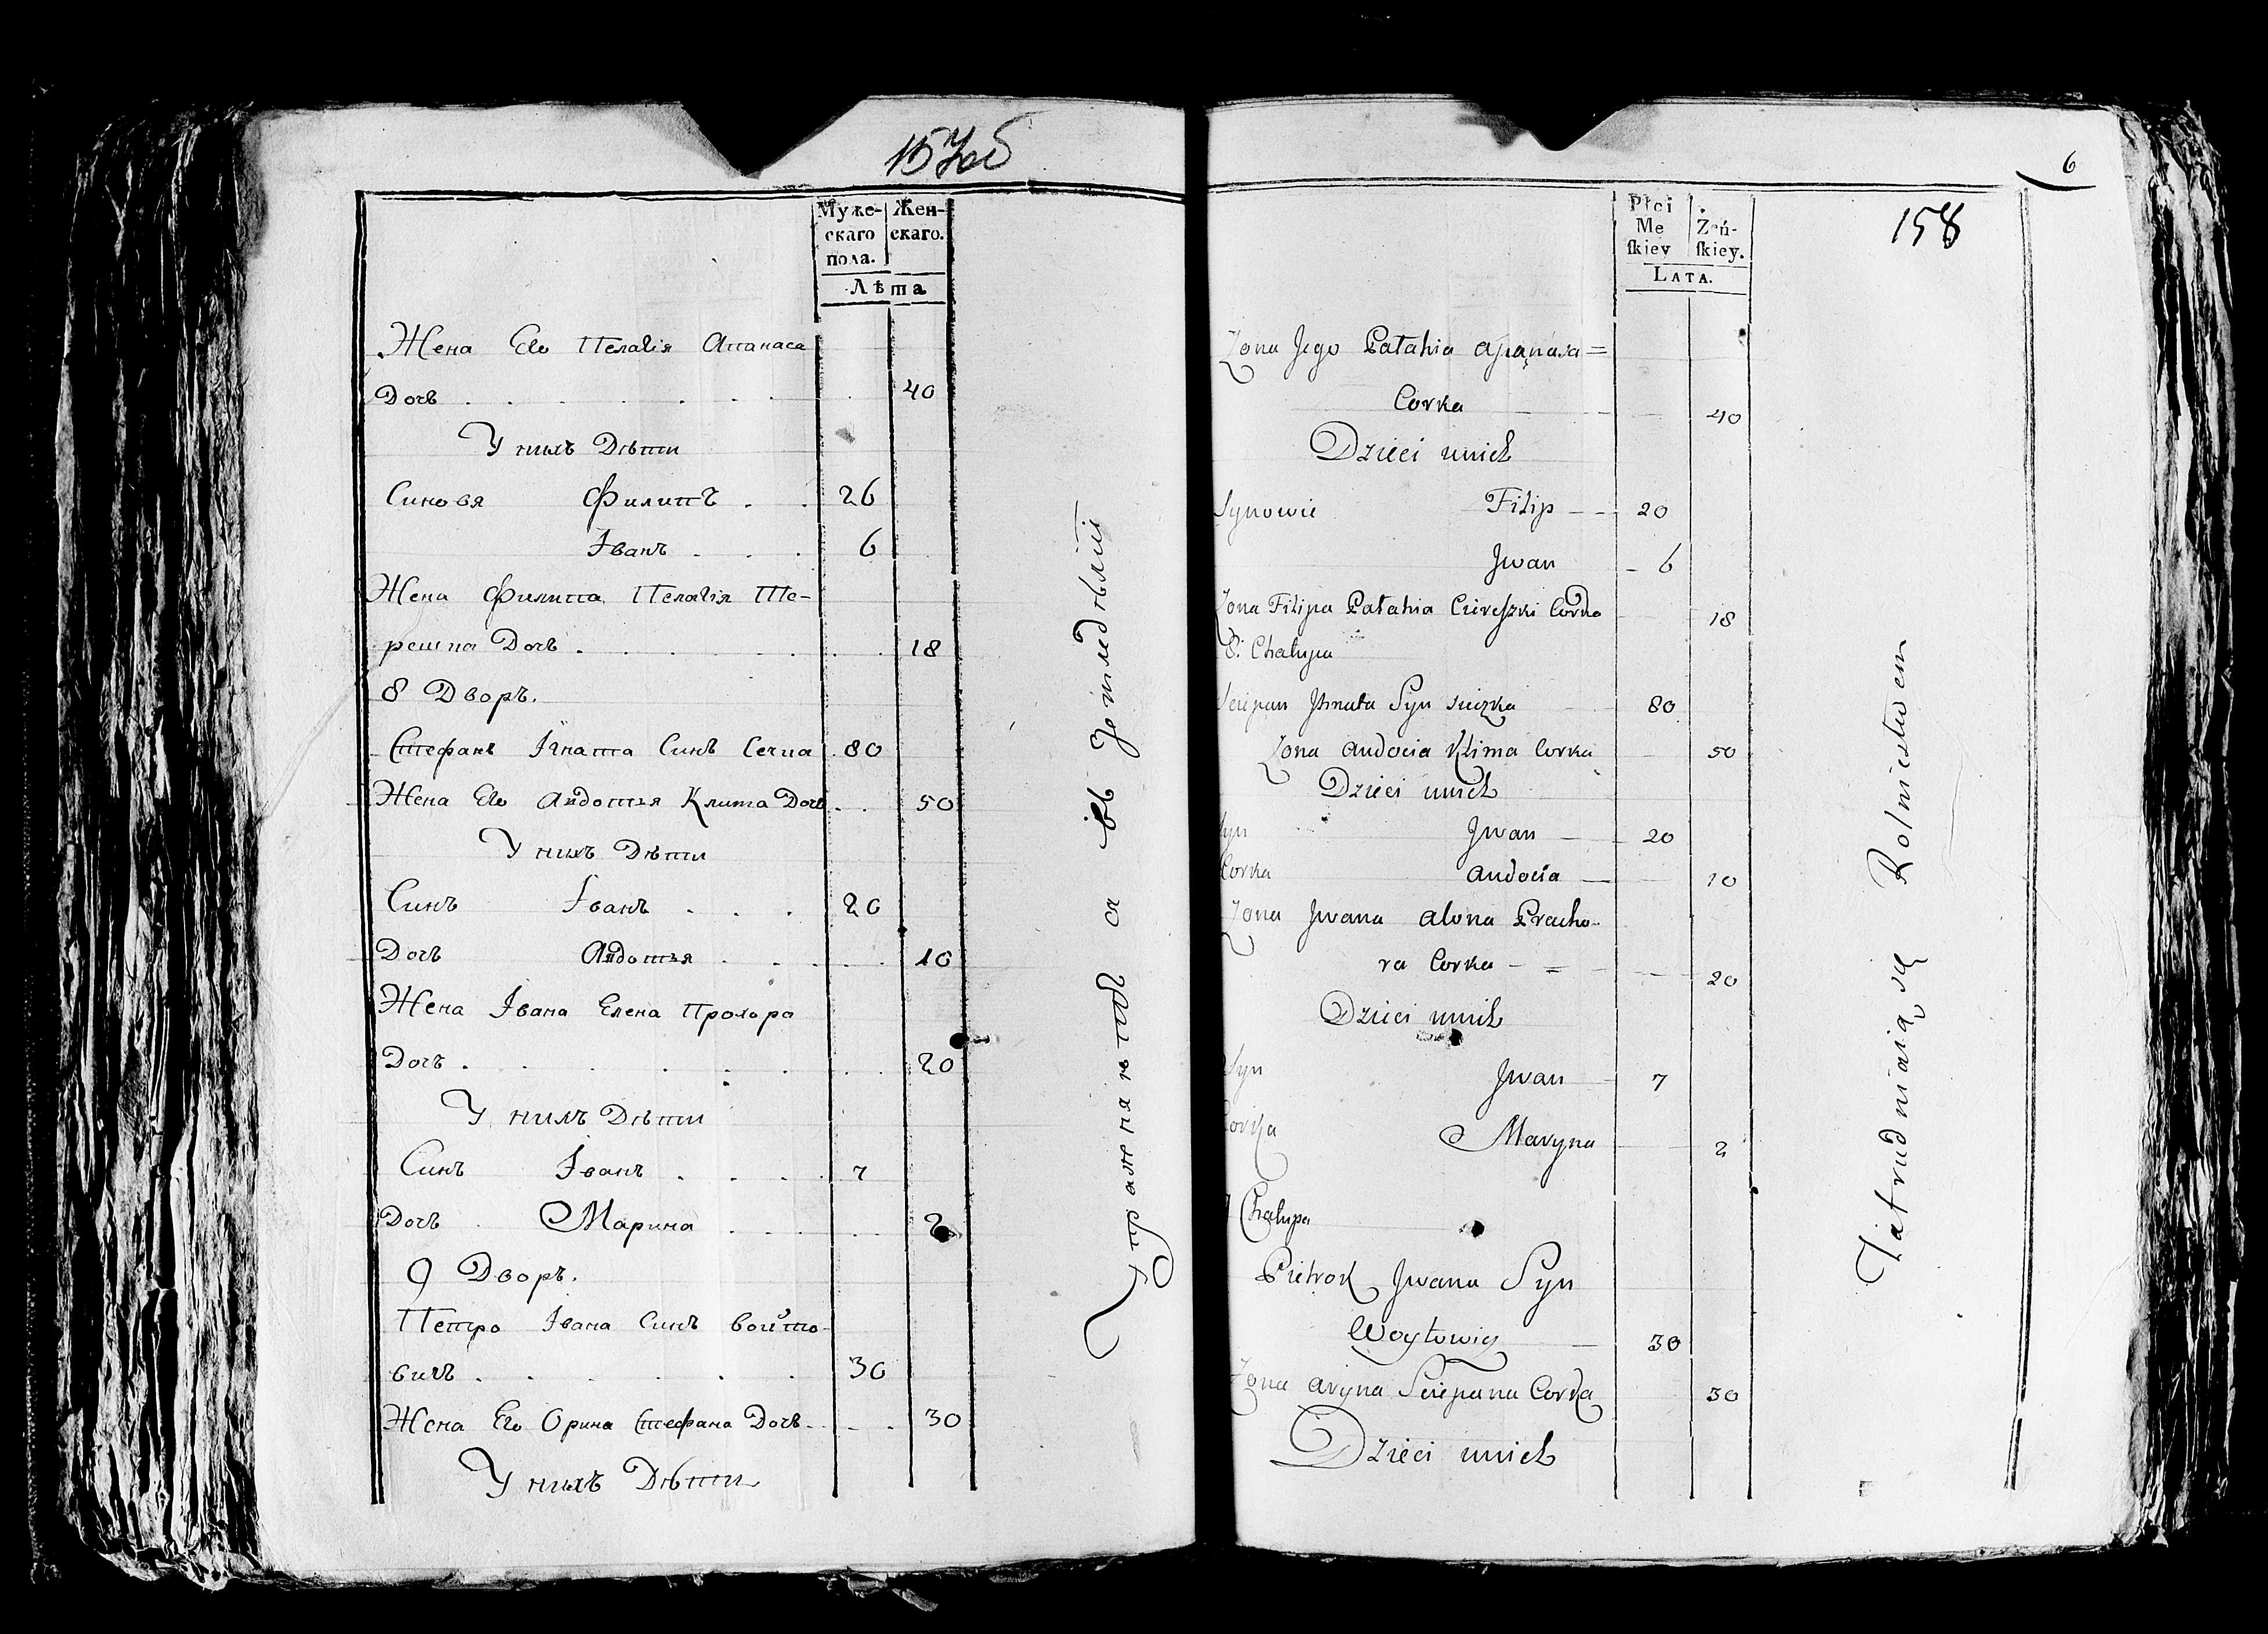 157об
Муже-
скаго
пола.
Жен-
скаго.
Лѣта
Жена Его Пелагія Апанаса
Дочь . . . . . . . 40
У нихъ Дѣти
Синовя Филипъ . . 26
Іванъ . . . 6
Жена Филипа Пелагія Те-
решпа Дочь . . . . . . 18
8 Дворъ.
Стефанъ Ігната Синъ 80
Жена Его Авдотья Клима Дочь . . 50
У нихъ Дѣти
Синъ Іванъ . . . 20
Дочь Авдотья . . . . . 10
Жена Івана Елена Прохора
Дочь . . . . . . . . 20
У нихъ Дѣти
Синъ Іванъ . . . . 7
Дочь Марина . . . . . 2
9 Дворъ.
Петро Івана Синъ Войто-
вичъ . . . . . . 30
Жена Его Орина Стефана Дочь . . . 30
У нихъ Дѣти
Упражняютъ ся въ
6
158
Płci
Mę
ſkiey
Żeń-
ſkiey.
LATA.
Zona Jego Pałahia Apanasa =
Corka 40
Dzieci unich
Synowie Filip - - 20
Jwan - 6
Zona Filipa Pałahia Ciereszki Corka 18
8: Chałupa
Sciepan Jhnata Syn 80
Zona Audocia Klima Corka 50
Dzieci unich
Syn Jwan - 20
Corka Audocia - 10
Zona Jwana Alona Pracho-
ra Corka - = - 20
Dzieci unich
Syn Jwan 7
Corka Maryna 2
9 Chałupa
Pietrok Jwana Syn
Woytowicz 30
Zona Aryna Sciepana Corka 30
Dzieci unich
Zatrudniaią się Rolnictwem